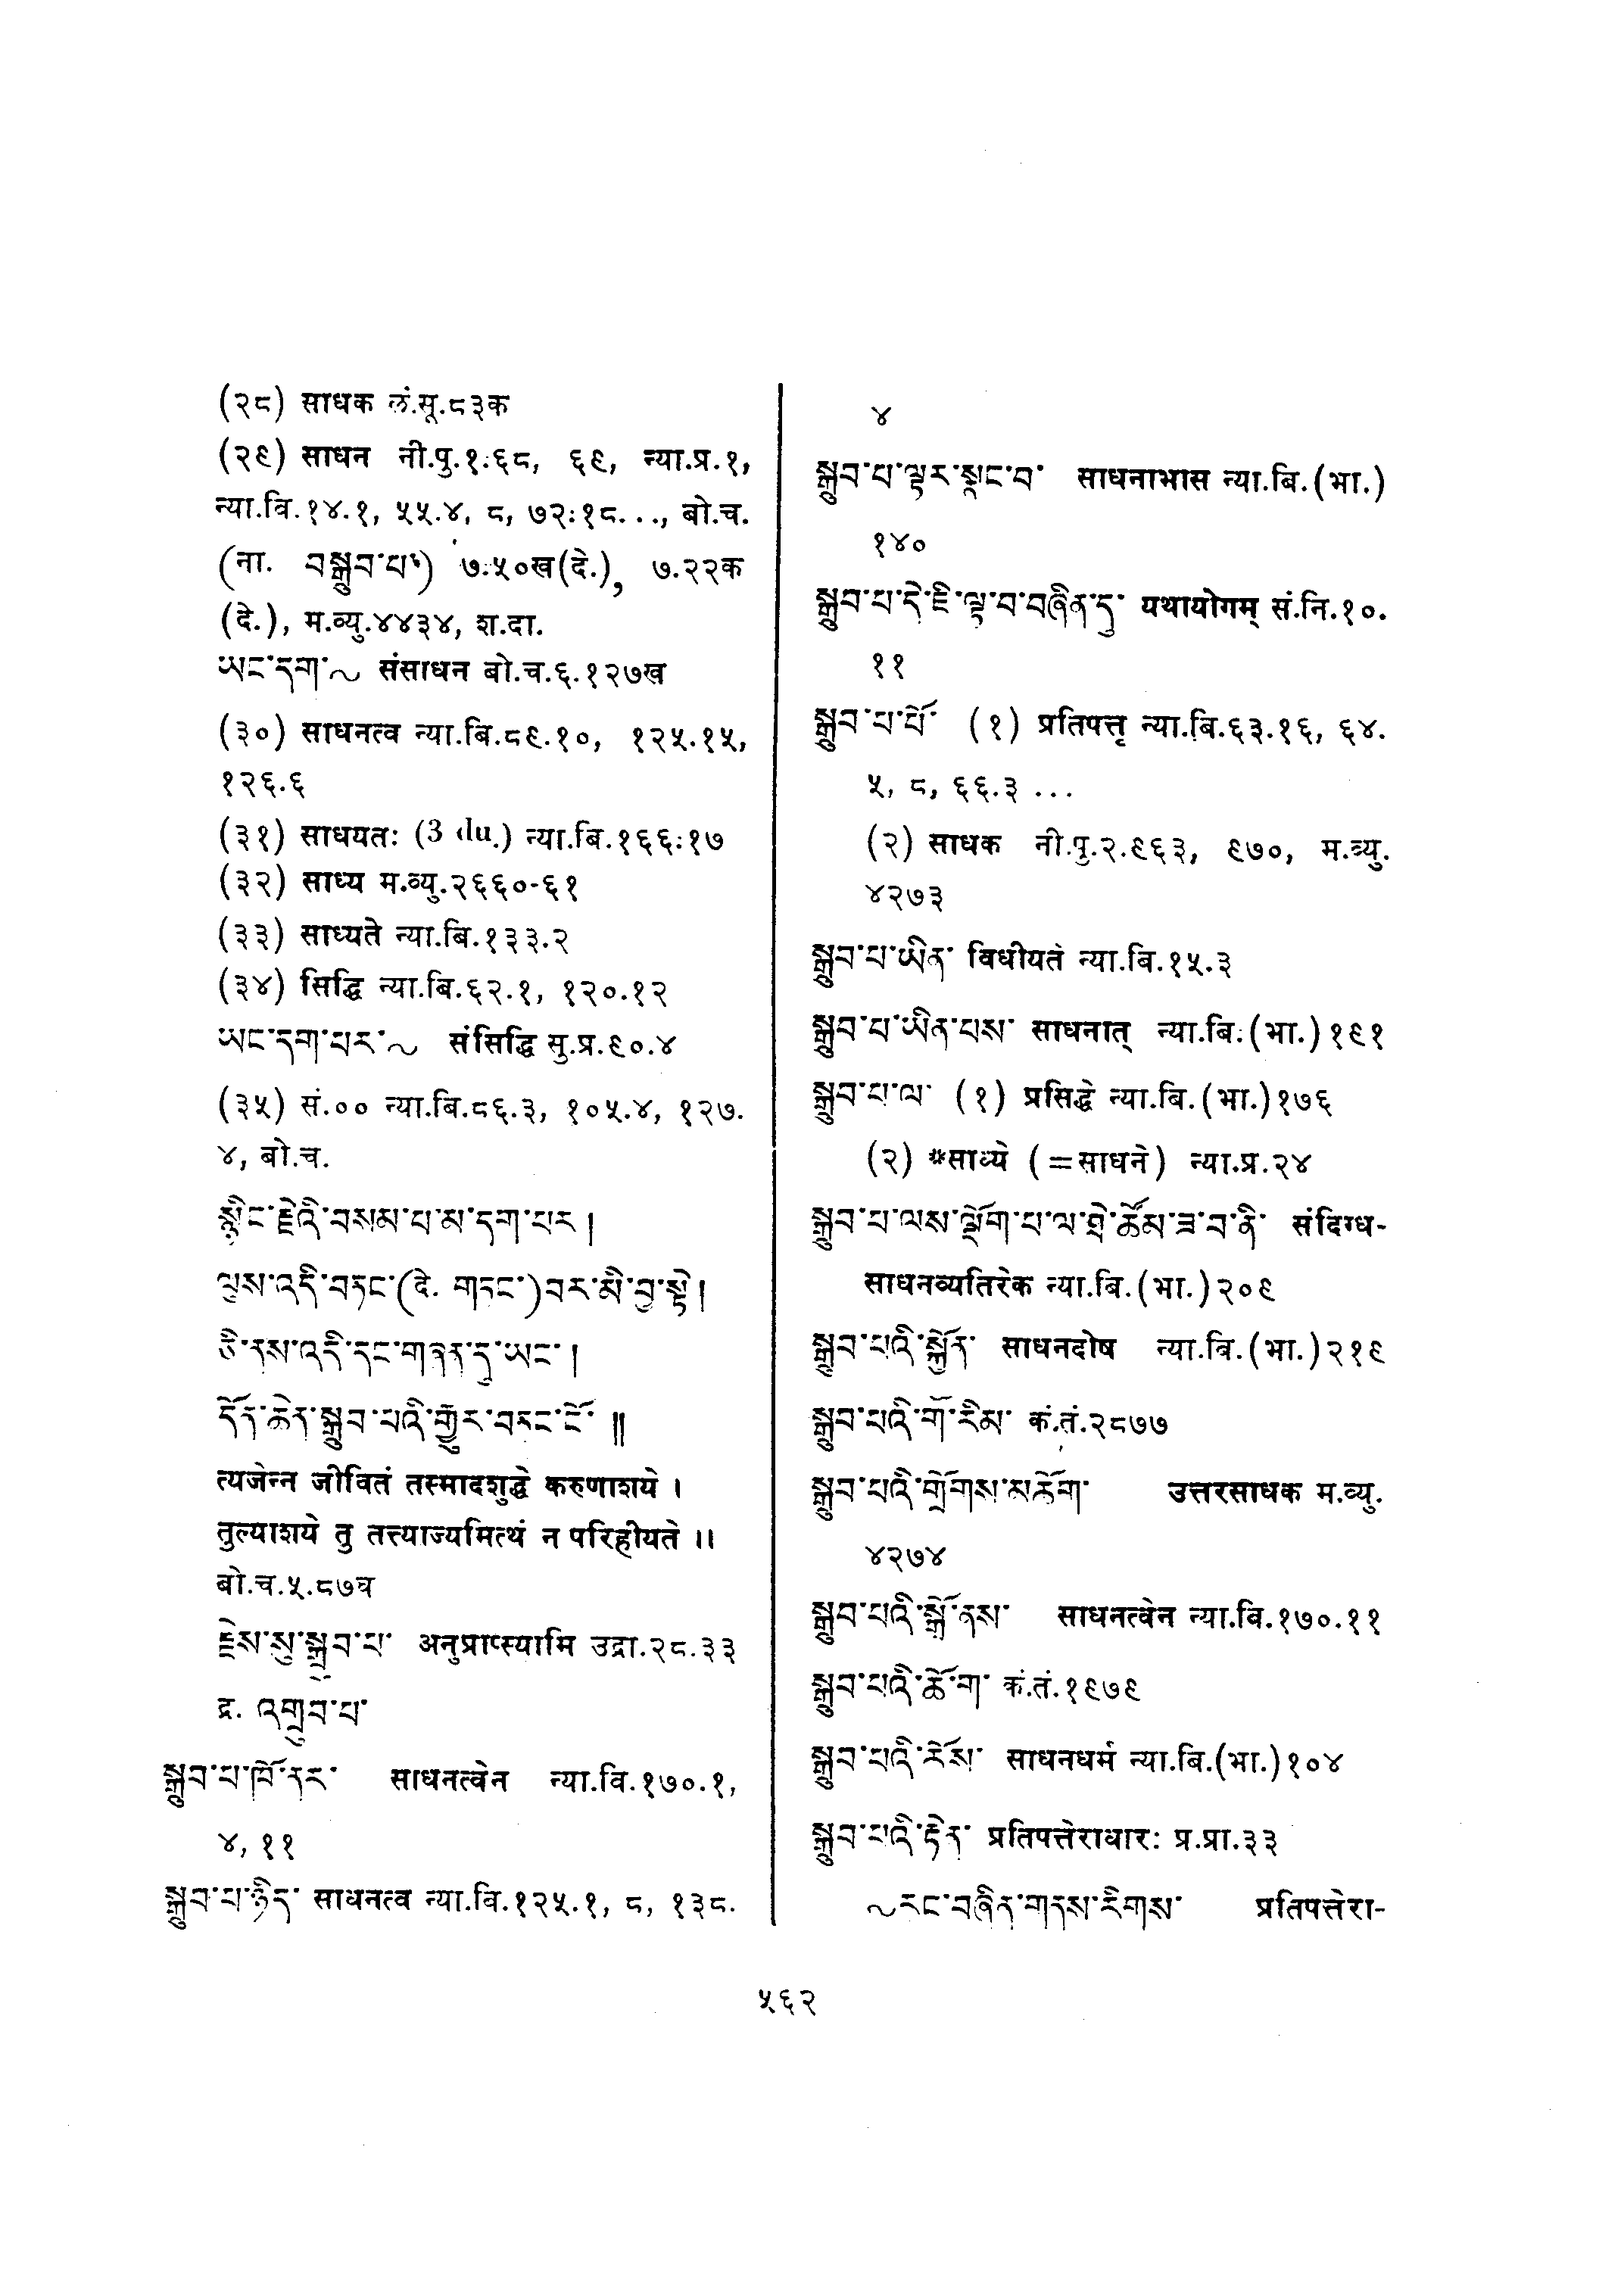 (२८) साधक लं.सू.८३क
(२९) साधन नी.पु.१.६८, ६९, न्या.प्र.१,
न्या.वि.१४.१, ५५.४, ८, ७२.१८..., बो.च.
(ना. བསྒྲུབ་པ་) ७.५०ख(दे.), ७.२२क
(दे.), म.व्यु.४४३४, श.दा.
ཡང་དག་~ संसाधन बो.च.६.१२७ख
(३०) साधनत्व न्या.बि.८९.१०, १२५.१५,
१२६.६
(३१) साधयतः (3 du.) न्या.बि.१६६.१७
(३२) साध्य म.व्यु.२६६०-६१
(३३) साध्यते न्या.बि.१३३.२
(३४) सिद्धि न्या.बि.६२.१, १२०.१२
ཡང་དག་པར་~ संसिद्धि सु.प्र.९०.४
(३५) सं.०० न्या.बि.८६.३, १०५.४, १२७.
४, बो.च.
སྙིང་རྗེའི་བསམ་པ་མ་དག་པར།
ལུས་འདི་བཏང་(दे. གཏང་)བར་མི་བྱ་སྟེ།
ཅི་ནས་འདི་དང་གཞན་དུ་ཡང་།
དོན་ཆེན་སྒྲུབ་པའི་རྒྱུར་བཏང་ངོ་༎
त्यजेन्न जीवितं तस्मादशुद्धे करुणाशये ।
तुल्याशये तु तत्त्याज्यमित्थं न परिहीयते ।।
बो.च.५.८७घ
རྗེས་སུ་སྒྲུབ་པ་ अनुप्राप्स्यामि उद्रा.२८.३३
द्र. འགྲུབ་པ་
སྒྲུབ་པ་ཁོ་ནར་ साधनत्वेन न्या.वि.१७०.१,
४, ११
སྒྲུབ་པ་ཉིད་ साधनत्व न्या.वि.१२५.१, ८, १३८.
४
སྒྲུབ་པ་ལྟར་སྣང་བ་ साधनाभास न्या.बि.(भा.)
१४०
སྒྲུབ་པ་དེ་ཇི་ལྟ་བ་བཞིན་དུ་ यथायोगम् सं.नि.१०.
११
སྒྲུབ་པ་པོ་ (१) प्रतिपत्तृ न्या.बि.६३.१६, ६४.
५, ८, ६६.३ ...
(२) साधक नी.पु.२.९६३, ९७०, म.व्यु.
४२७३
སྒྲུབ་པ་ཡིན་ विधीयते न्या.बि.१५.३
སྒྲུབ་པ་ཡིན་པས་ साधनात् न्या.बि.(भा.)१९१
སྒྲུབ་པ་ལ་ (१) प्रसिद्धे न्या.बि.(भा.)१७६
(२) *साध्ये (=साधने) न्या.प्र.२४
སྒྲུབ་པ་ལས་ལྡོག་པ་ལ་ཐེ་ཚོམ་ཟ་བ་ནི་ संदिग्ध-
साधनव्यतिरेक न्या.बि.(भा.)२०९
སྒྲུབ་པའི་སྐྱོན་ साधनदोष न्या.बि.(भा.)२१९
སྒྲུབ་པའི་གོ་རིམ་ कं.तं.२८७७
སྒྲུབ་པའི་གྲོགས་མཆོག་ उत्तरसाधक म.व्यु.
४२७४
སྒྲུབ་པའི་སྒོ་ནས་ साधनत्वेन न्या.बि.१७०.११
སྒྲུབ་པའི་ཆོ་ག་ कं.तं.१९७९
སྒྲུབ་པའི་ཆོས་ साधनधर्म न्या.बि.(भा.)१०४
སྒྲུབ་པའི་རྟེན་ प्रतिपत्तेराधारः प्र.प्रा.३३
~རང་བཞིན་གནས་རིགས་ प्रतिपत्तेरा-
५६२